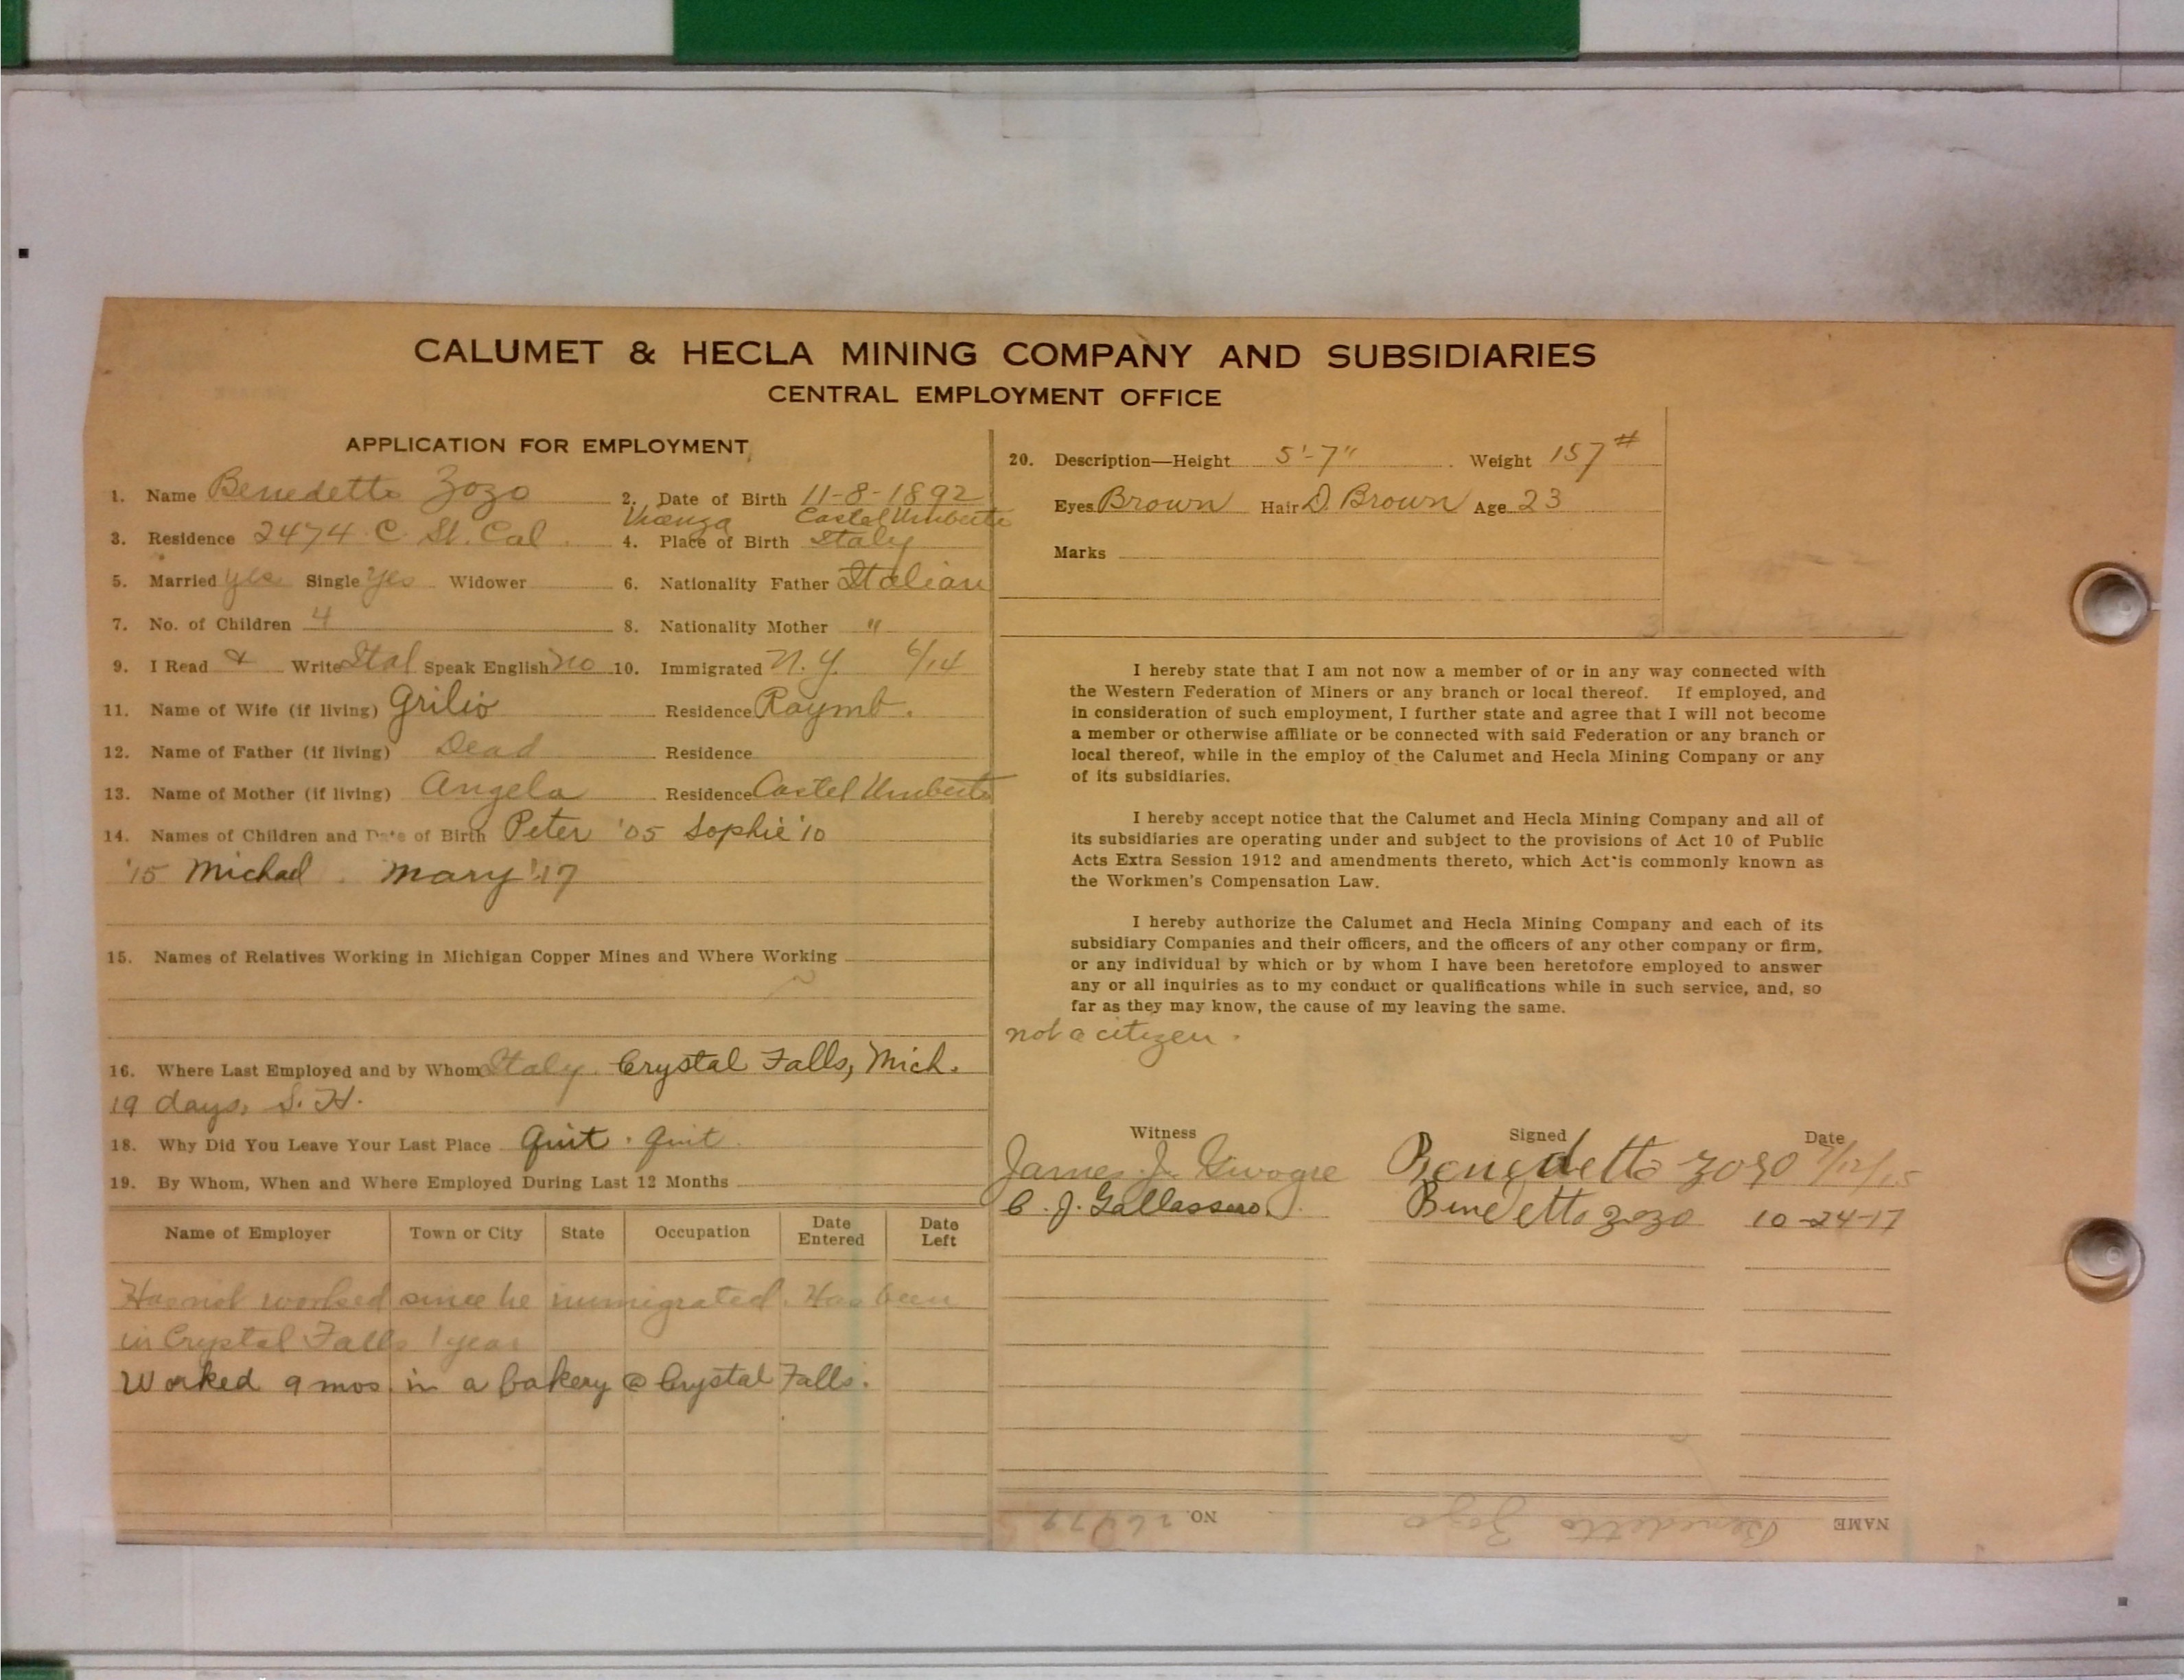 CALUMET & HECLA MINING COMPANY AND SUBSIDIARIES
CENTRAL EMPLOYMENT OFFICE
APPLICATION FOR EMPLOYMENT
1. Name Benedetto Zozo 2. Date of Birth 11-8-1892
Castel Umberto
3. Residence 2474 C. St. Cal 4. Place of Birth Italy
5. Married yes Single yes Widower 6. Nationality Father Italian
7. No. of Children 4 8. Nationality Mother "
9. I Read & Write Ital Speak English no 10. Immigrated N.Y. 6/14
11. Name of Wife (if living) Grilio Residence Raymb.
12. Name of Father (if living) Dead Residence
13. Name of Mother (if living) Angela Residence Castel Umberto
14. Names of Children and Date of Birth Peter '05 Sophie '10
'15 Michael. Mary '17
15. Names of Relatives Working in Michigan Copper Mines and Where Working
16. Where Last Employed and by Whom Italy. Crystal Falls, Mich.
19 days, S. H.
18. Why Did You Leave Your Last Place Quit. Quit.
19. By Whom, When and Where Employed During Last 12 Months
Name of Employer Town or City State Occupation Date Entered Date Left
Has not worked since he immigrated. Has been
in Crystal Falls 1 year
Worked 9 mos. in a bakery @ Crystal Falls.
20. Description—Height 5'-7" Weight 157#
Eyes Brown Hair D. Brown Age 23
Marks
I hereby state that I am not now a member of or in any way connected with
the Western Federation of Miners or any branch or local thereof. If employed, and
in consideration of such employment, I further state and agree that I will not become
a member or otherwise affiliate or be connected with said Federation or any branch or
local thereof, while in the employ of the Calumet and Hecla Mining Company or any
of its subsidiaries.
I hereby accept notice that the Calumet and Hecla Mining Company and all of
its subsidiaries are operating under and subject to the provisions of Act 10 of Public
Acts Extra Session 1912 and amendments thereto, which Act is commonly known as
the Workmen's Compensation Law.
I hereby authorize the Calumet and Hecla Mining Company and each of its
subsidiary Companies and their officers, and the officers of any other company or firm,
or any individual by which or by whom I have been heretofore employed to answer
any or all inquiries as to my conduct or qualifications while in such service, and, so
far as they may know, the cause of my leaving the same.
not a citizen.
Witness Signed Date
James J. Benedetto Zozo
C. J. Benedetto Zozo 10-24-17
NAME Benedetto Zozo NO.